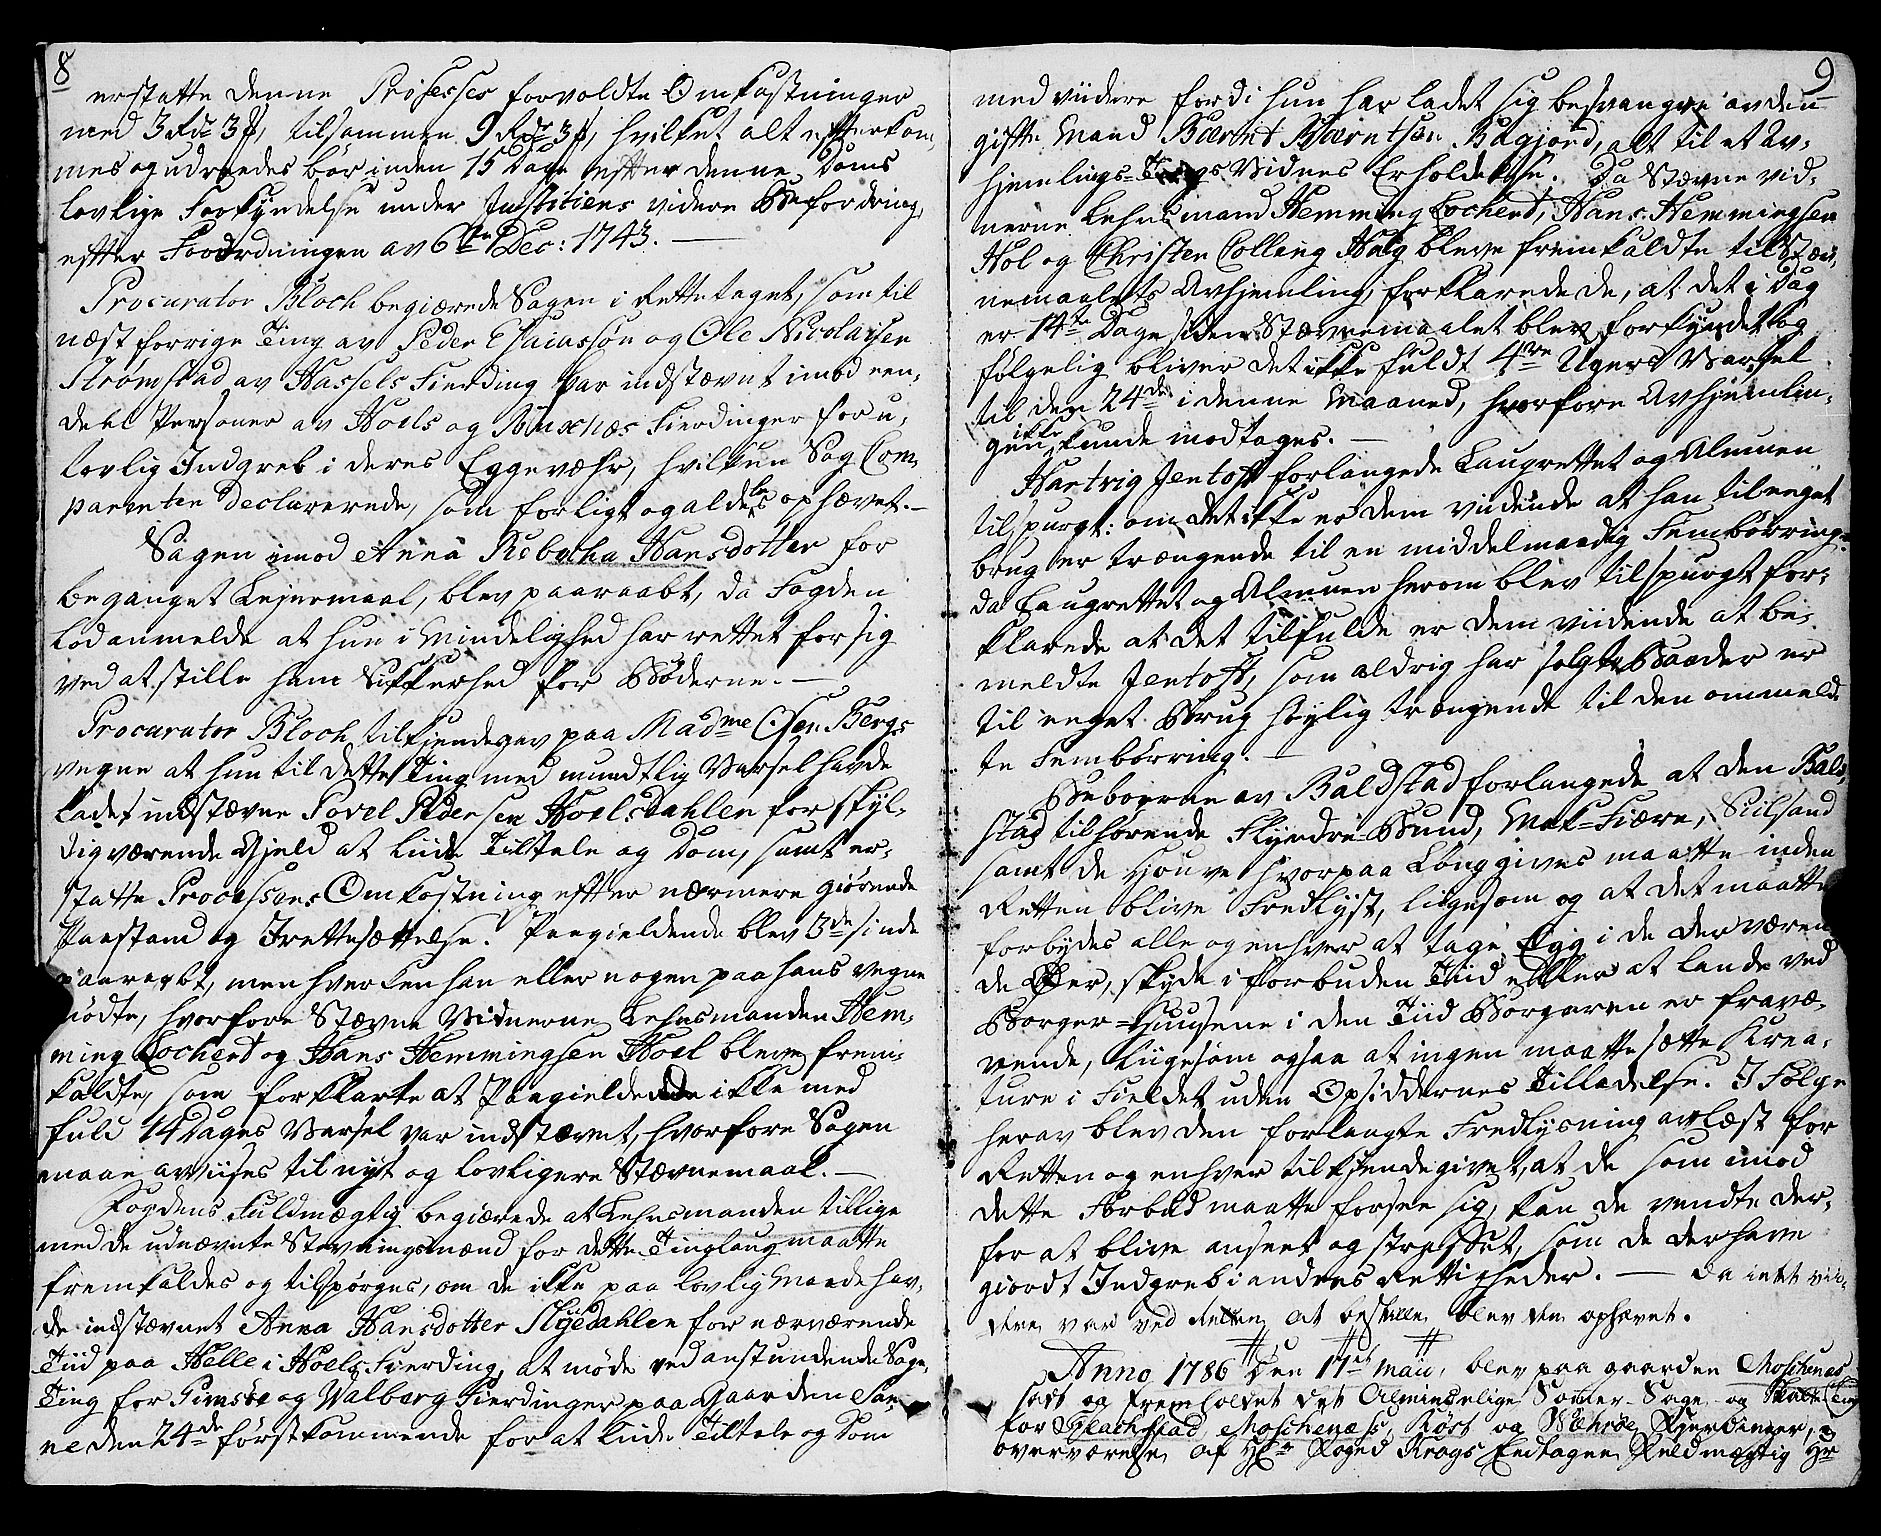 8
erstatte denne Prosesses forvoldte Omkostninger
med 3 Rdr 3 ß, tilsammen 9 Rdr 3 ß, hvilket alt efterkom-
mes og udreedes bör inden 15 Dage efter denne Doms
lovlige Forkyndelse under Justitiens videre Befordring,
efter Foordningen av 6te Dec: 1743. —
Procurator Bloch begiærede Sagen i Rette taget, som til
næst forrige Ting av Peder Esaiassøn og Ole Nicolaisen
Strømstad av Hassels Fierding var indstævnt imod een-
deel Personer av Hoels og Buschnæs Fierdinger for u-
lovlig Indgreb i deres Eggeværhr, hvilken Sag Com-
parenten declarerede, som forligt og aldeles ophævet. —
Sagen imod Anna Rebecha Hansdotter for
beganget Lejermaal, blev paaraabt, da Fogden
lod anmelde at hun i Mindelighed har rettet for sig
ved at stille ham Sikkerhed for Böderne. —
Procurator Bloch tilkjendegav paa Madme Osen Bergs
vegne at hun til dette Ting med mundtlig Varsel havde
ladet indstævne Povel Pedersen Hoelsdahlen for skyl-
dig værende Gjeld at liide Tiltale og Dom, samt er-
statte Processens Omkostning efter nærmere giørende
Paastand og Irettesættelse. Paagieldende blev 3de sinde
paaraabt, men hverken han eller nogen paa hans vegne
mödte, hvorfore Stævne Vidnerne Lehnsmanden Hem-
ming Cochert og Hans Hemmingsen Hoel bleve frem-
kaldte, som forklarte at Paagieldende ikke med
fuld 14 Dages Varsel var indstævnt, hvorfore Sagen
maae avviises til nyt og lovligere Stævnemaal. —
Fogdens Fuldmægtig begiærede at Lehnsmanden tillige
med de udnævnte Stevningsmænd for dette Tinglaug maatte
fremkaldes og tilspörges, om de ikke paa lovlig Maade hav-
de indstævnet Anna Hansdotter Slydahlen for nærværende
Tiid paa Helle i Hoels Fierding, at møde ved anstundende Sage-
Ting for Gimsöe og Valberg Fierdinger paa Gaarden San-
ne den 24de förstkommende for at liide Tiltale og Dom
9
med viidere fordi hun har ladet sig besvangre av den
gifte Mand Bærnt Bærntsen Bagjord, alt til et Av-
hjemlings-Tings Vidnes Erholdelse. Da Stævnevid-
nerne Lehnsmand Hemming Cochert, Hans Hemmingsen
Hol og Christen Colling Haug bleve fremkaldte til Stæv-
nemaalets Avhjemling, forklarede de, at det i Dag
er 14te Dage siden Stævnemaalet blev forkyndet og
fölgelig bliver det ikke fuldt 4re Ugers Varsel
til den 24de i denne Maaned, hvorfore Avhjemlin-
gen ikke kunde modtages. —
Hartvig Jentoft forlangede Laugrettet og Almuen
tilspurgt: om det ikke er dem viidende at han til eeget
brug er trængende til en middelmaadig Fembörring.
da Laugrettet og Almuen herom blev tilspurgt for-
klarede at det tilfulde er dem viidende at be-
meldte Jentoft, som aldrig har solgte Baader er
til eeget Brug höylig trængende til den ommeld-
te Fembörring. —
Beboerne av Baldstad forlangede at den Bald-
stad tilhörende Flyndre-Bund, Mak-Fiære, Siilsand
samt de Houve hvorpaa Löng gives maatte inden
Retten blive Fredlyst, ligesom og at det maatte
forbydes alle og enhver at tage Egg i de der væren-
de Öer, skyde i forbuden Tiid eller at lande ved
Borger-Huusene i den Tiid Borgeren er fravæ-
rende, liigesom ogsaa at ingen maatte sætte Krea-
ture i Fieldet uden Opsiddernes Tilladelse. I Fölge
herav blev den forlangte Fredlysning avlæst for
Retten og enhver tilkjendegivet, at de som imod
dette Forbud maatte forsee sig, kan de vendte der-
for at blive anseet og straffet, som de der have
giordt Indgreb i andres Rettigheder. — Da intet vii-
dere var ved Retten at bestille, blev den ophævet.
Anno 1786 den 17de Maii, blev paa gaarden Moschenæs
satt og fremholdet det Almindelige Somer-Sage- og Skatte Ting
for Flachstad, Moschenæss, Röst og Wehröe Fjerdinger, i
overværelse af Hr Foged Krogs Antagne Fuldmægtig Hr